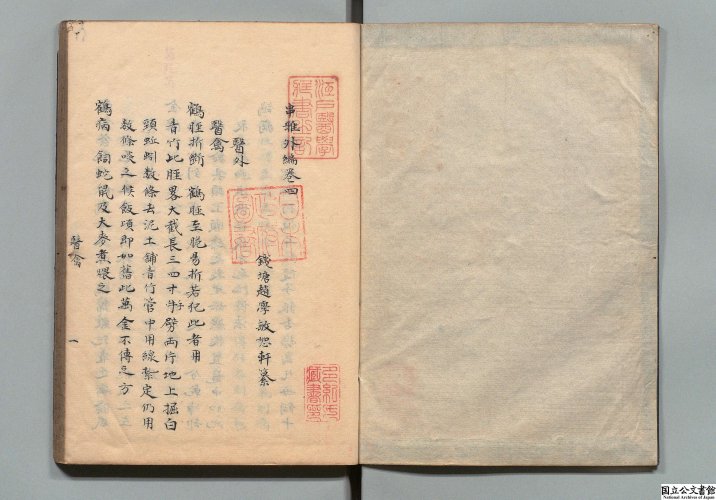 串雅外編卷四
錢塘趙學敏恕軒纂
醫外
醫禽
鶴脛折斷 鶴脛至脆易折若犯此者用
青竹比脛畧大截長三四寸劈兩片地上掘白
頭蚯蚓數條去泥土鋪青竹管中用線紮定仍用
數條喂之候飯頃即如舊此萬金不傳之方
鶴病 飼蛇鼠及大麥煮喂之
醫禽
一
江戶醫學
藏書之記
多紀氏
藏書印
国立公文書館
National Archives of Japan